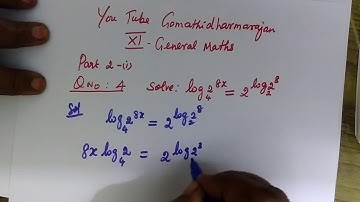 You Tube Gomathidharmarajan
XI - General Maths
Part 2-(i)
Q NO: 4 Solve: log₄ 2^{8x} = 2^{log₂ 8}
Sol log₄ 2^{8x} = 2^{log₂ 8}
8x log₄ 2 = 2^{log₂ 8}